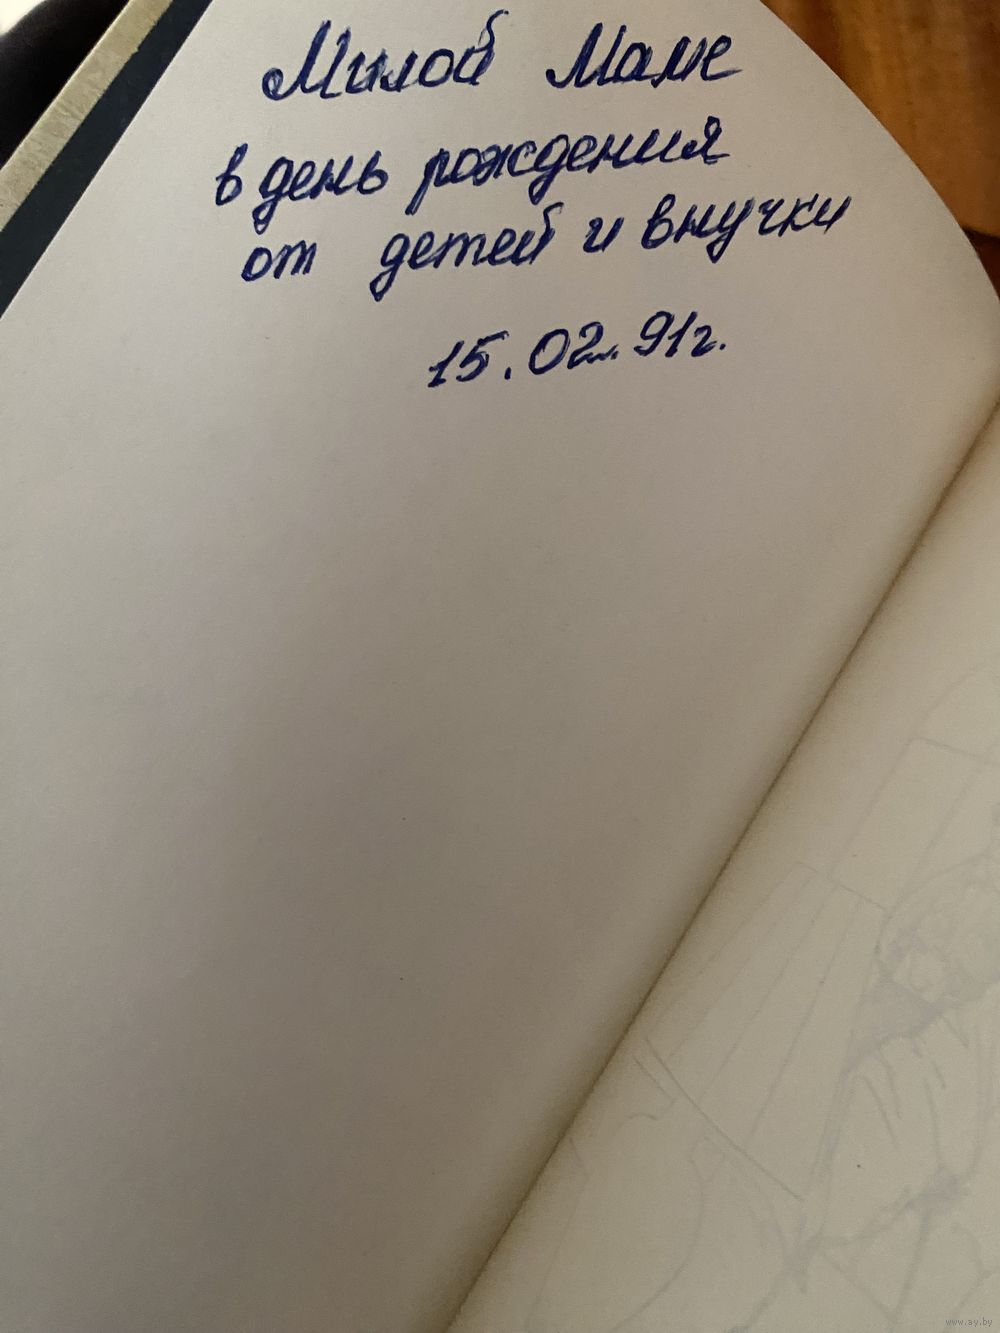 Милой Маме
в день рождения
от детей и внучки
15.02.91г.
www.ay.by